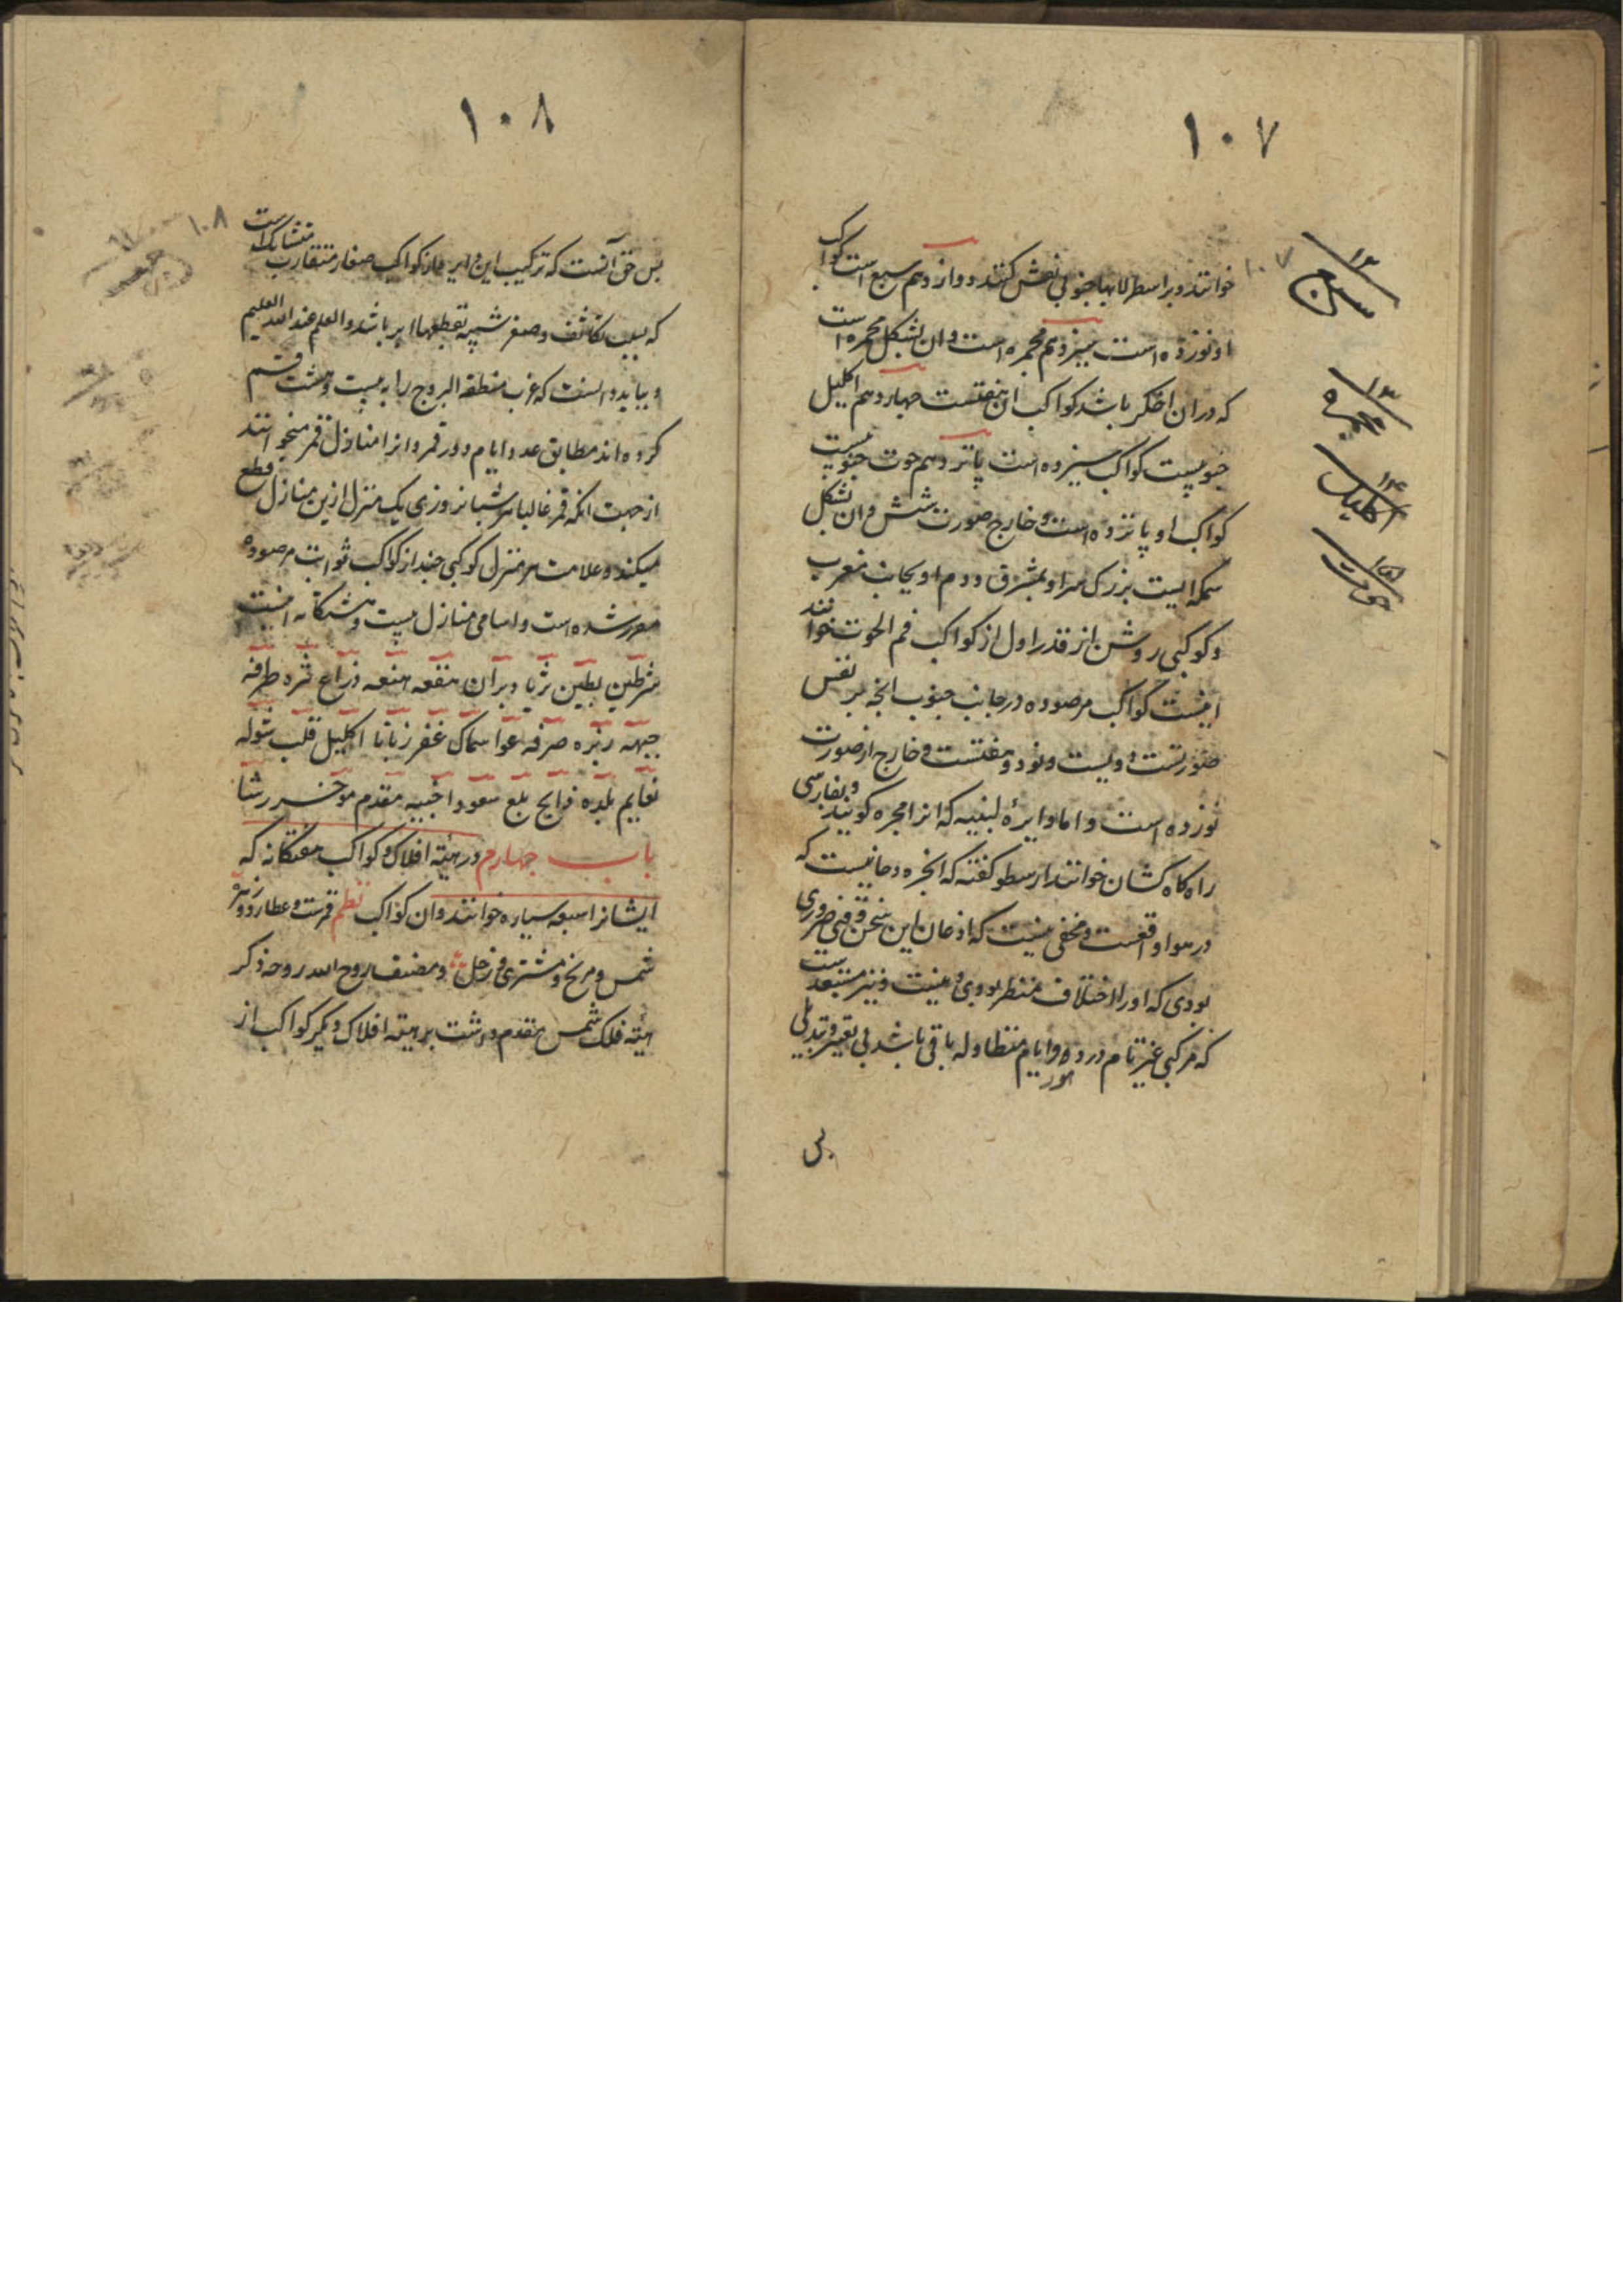 ١٠٧
خوانند و بر اسطرلابها جنوبی نقش کنند دوازدهم سبع است کواکب
او نوزده است سیزدهم مجمره است و ان بشکل مجمره است
که دران اخکر باشد کواکب ان هفتست چهاردهم اکلیل
جنوبیست کواکب سیزده است پانزدهم حوت جنوبیست
کواکب او پانزده است و خارج صورت شش و ان بشکل
سمکه ایست بزرک سر او بمشرق و دم او بجانب مغرب
و کوکبی روشن از قدر اول از کواکب فم الحوت خوانند
اینست کواکب مرصوده در جانب جنوب انچه بر نفس
صورتست دویست و نود و هفتست و خارج از صورت
نوزده است و اما دایرهٔ لبنیه که انرا مجره کویند و بفارسی
راه کاه کشان خوانند ارسطو کفته که انجره دخانیست که
در هوا واقعست و مخفی نیست که اذعان این سخن وقتی ضروری
بودی که اورا اختلاف منظر بودی و نیست و نیز مستبعدست
که مرکبی غیر تام در دهور و ایام متطاوله باقی باشد بی تغییر و تبدیلی
١٢ سبع
١٣ مجمره
١٤ اکلیل
١٥ حوت
١٠٧
١٠٨
پس حق آنست که ترکیب این دایره از کواکب صغار متقارب متشابک است
که بسبب تکاثف و صغر شبیه بقطعهاء ابر باشد و العلم عند الله العلیم
و بباید دانست که عرب منطقة البروج را به بیست و هشت قسم
کرده اند مطابق عدد ایام دور قمر و انرا منازل قمر میخوانند
از جهت انکه قمر غالبا هر شبانروزی یک منزل ازین منازل قطع
میکند و علامت هر منزل کوکبی چند از کواکب ثوابت مرصوده
مقرر شده است و اسامی منازل بیست و هشتکانه اینست
شرطین بطین ثریا دبران هقعه هنعه ذراع نثره طرفه
جبهه زبره صرفه عوا سماک غفر زبانا اکلیل قلب شوله
نعایم بلده ذابح بلع سعود اخبیه مقدم موخر رشا
باب چهارم در هیئة افلاک و کواکب هفتکانه که
ایشانرا سبعه سیاره خوانند و ان کواکب نظم قمرست و عطارد و زهره
شمس و مریخ و مشتری و زحل و مصنف روح الله روحه ذکر
هیئة فلک شمس مقدم داشت بر هیئة افلاک دیکر کواکب از
١٠٨